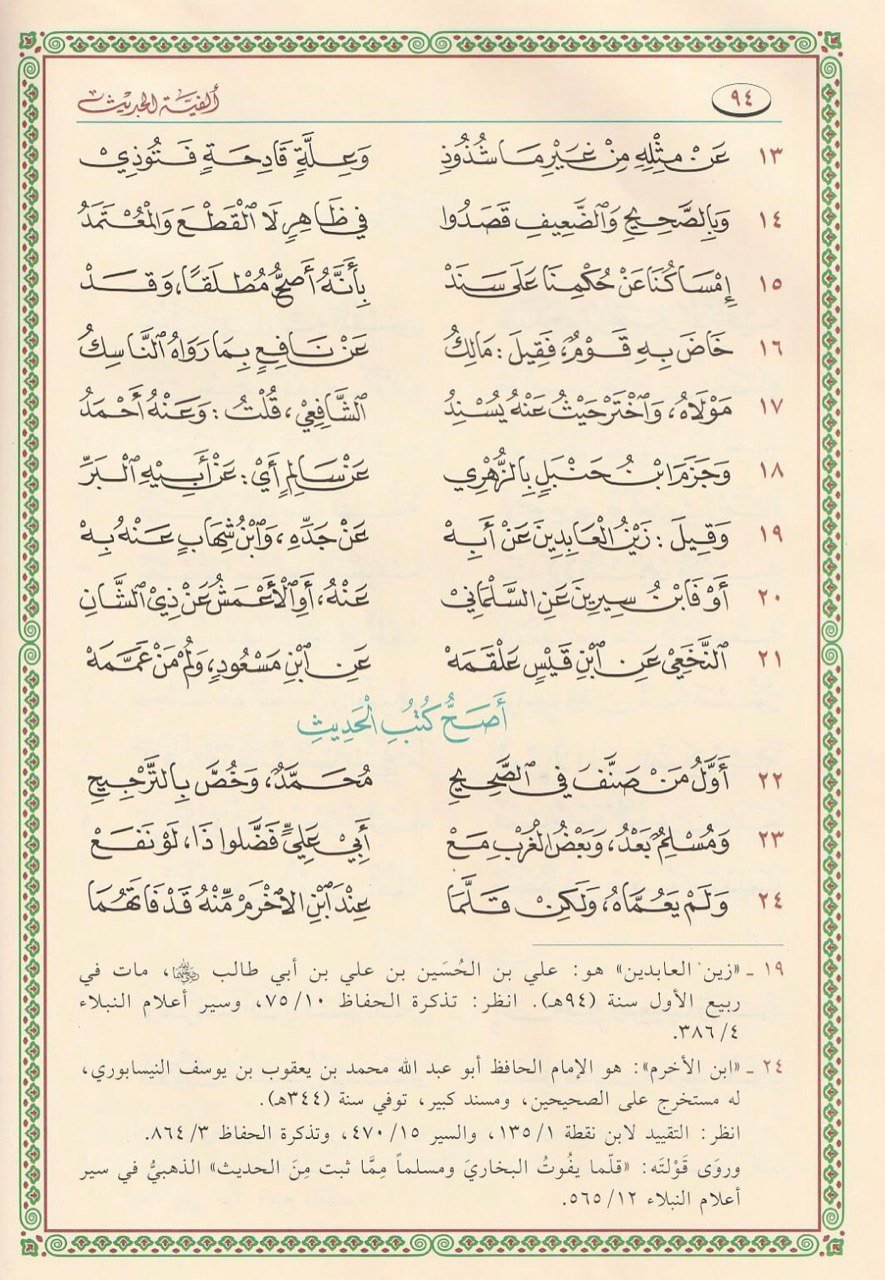 ٩٤ ألفيّة الحديث
١٣ عَنْ مِثْلِهِ مِنْ غَيْرِ مَا شُذُوذِ وَعِلَّةٍ قَادِحَةٍ فَتُوذِيْ
١٤ وَبِالصَّحِيحِ وَالضَّعِيفِ قَصَدُوا فِي ظَاهِرٍ لَا الْقَطْعَ وَالْمُعْتَمَدُ
١٥ إِمْسَاكُنَا عَنْ حُكْمِنَا عَلَى سَنَدْ بِأَنَّهُ أَصَحُّ مُطْلَقًا، وَقَدْ
١٦ خَاضَ بِهِ قَوْمٌ، فَقِيلَ: مَالِكُ عَنْ نَافِعٍ بِمَا رَوَاهُ النَّاسِكُ
١٧ مَوْلَاهُ، وَاخْتَرْ حَيْثُ عَنْهُ يُسْنِدُ الشَّافِعِيْ، قُلْتُ: وَعَنْهُ أَحْمَدُ
١٨ وَجَزَمَ ابْنُ حَنْبَلٍ بِالزُّهْرِي عَنْ سَالِمٍ أَيْ: عَنْ أَبِيْهِ الْبَرِّ
١٩ وَقِيلَ: زَيْنُ الْعَابِدِينَ عَنْ أَبِهْ عَنْ جَدِّهِ، وَابْنُ شِهَابٍ عَنْهُ بِهْ
٢٠ أَوْ فَابْنُ سِيرِينَ عَنِ السَّلْمَانِيْ عَنْهُ، أَوِ الْأَعْمَشُ عَنْ ذِيْ الشَّانِ
٢١ النَّخَعِيْ عَنِ ابْنِ قَيْسٍ عَلْقَمَهْ عَنِ ابْنِ مَسْعُودٍ، وَلُمْ مَنْ عَمَّمَهْ
أَصَحُّ كُتُبِ الْحَدِيثِ
٢٢ أَوَّلُ مَنْ صَنَّفَ فِي الصَّحِيحِ مُحَمَّدٌ، وَخُصَّ بِالتَّرْجِيحِ
٢٣ وَمُسْلِمٌ بَعْدُ، وَبَعْضُ الْغَرْبِ مَعْ أَبِيْ عَلِيٍّ فَضَّلُوا ذَا، لَوْ نَفَعْ
٢٤ وَلَمْ يَعُمَّاهُ، وَلَكِنْ قَلَّمَا عِنْدَ ابْنِ الاخْرَمْ مِنْهُ قَدْ فَاتَهُمَا
١٩ ـ «زين العابدين» هو: علي بن الحُسَين بن علي بن أبي طالب رضي الله عنهما، مات في
ربيع الأول سنة (٩٤هـ). انظر: تذكرة الحفاظ ٧٥/١٠، وسير أعلام النبلاء
٣٨٦/٤.
٢٤ ـ «ابن الأخرم»: هو الإمام الحافظ أبو عبد الله محمد بن يعقوب بن يوسف النيسابوري،
له مستخرج على الصحيحين، ومسند كبير، توفي سنة (٣٤٤هـ).
انظر: التقييد لابن نقطة ١٣٥/١، والسير ٤٧٠/١٥، وتذكرة الحفاظ ٨٦٤/٣.
وروَى قَوْلتَه: «قلّما يفُوتُ البخاريَ ومسلماً مِمَّا ثبت مِنَ الحديث» الذهبيُّ في سير
أعلام النبلاء ٥٦٥/١٢.